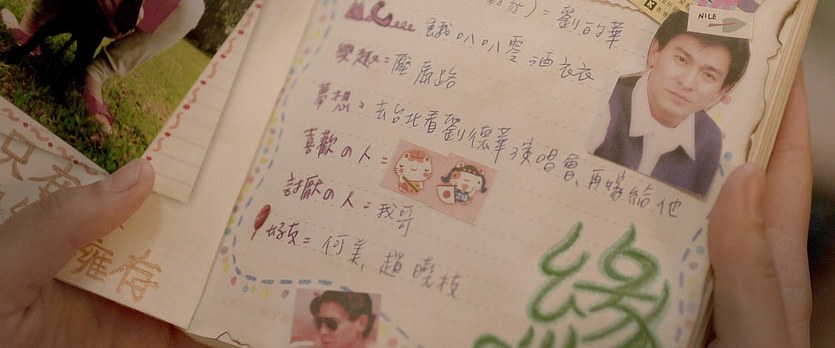 NICE
)=劉的華
餓叭叭零酒衣衣
興趣=壓馬路
夢想=去台北看劉德華演唱會、再嫁給他
喜歡の人=
討厭の人=我哥
好友=何美、趙曉枝
緣
只在
擁存